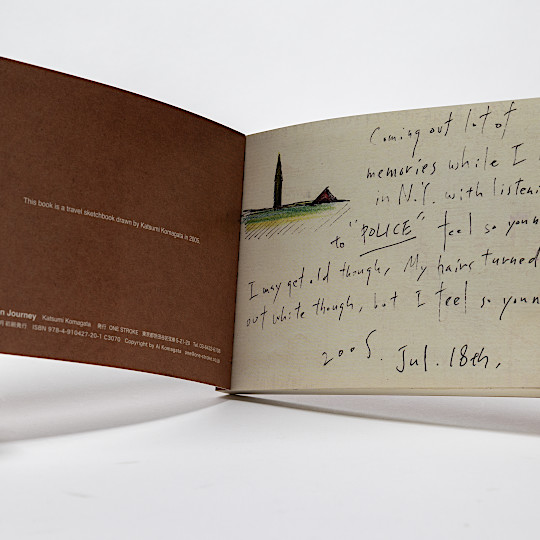 This book is a travel sketchbook drawn by Katsumi Komagata in 2005.
n Journey Katsumi Komagata 発行 ONE STROKE
ISBN 978-4-910427-20-1 C3070 Copyright by Ai Komagata
Coming out lot of
memories while I
in N.Y. with listeni
to "POLICE" feel so youn
I may get old though, My hairs turned
out white though, but I feel so youn
2005. Jul. 18th,